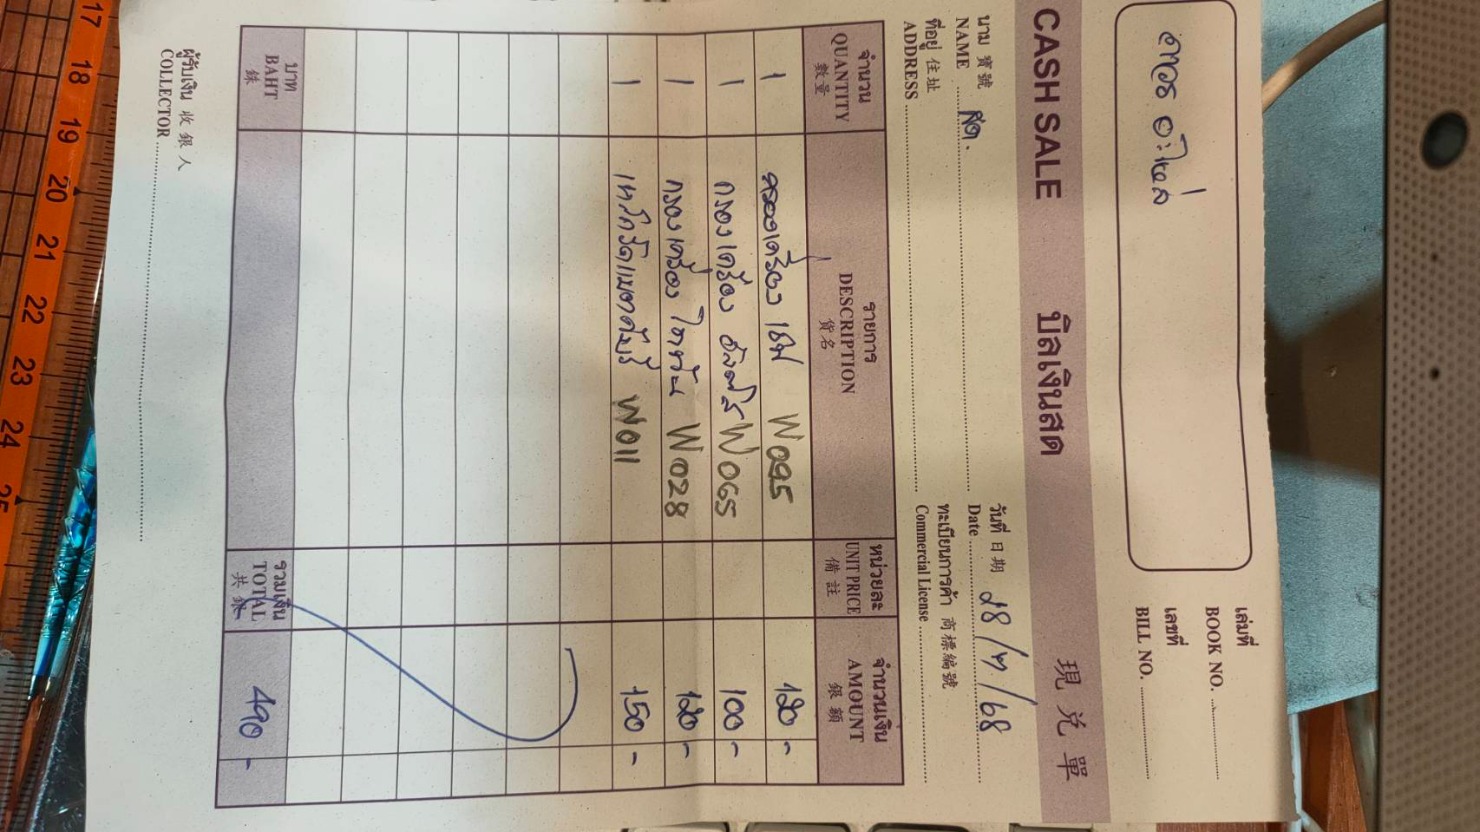 ถาวร อะไหล่
เล่มที่
BOOK NO.
เลขที่
BILL NO.
CASH SALE บิลเงินสด 現兌單
นาม 寶號
NAME สด.
วันที่ 日期
Date 28/7/68
ที่อยู่ 住址
ADDRESS
ทะเบียนการค้า 商標編號
Commercial License
จำนวน รายการ หน่วยละ จำนวนเงิน
QUANTITY DESCRIPTION UNIT PRICE AMOUNT
數量 貨名 備註 銀額
1 กรองเครื่อง เชฟ W095 120 -
1 กรองเครื่อง อีซูซุ W065 100 -
1 กรองเครื่อง ไททัน W028 120 -
1 W011 150 -
บาท รวมเงิน
BAHT TOTAL 490 -
銖 共銀
ผู้รับเงิน 收銀人
COLLECTOR
17 18 19 20 21 22 23 24 25